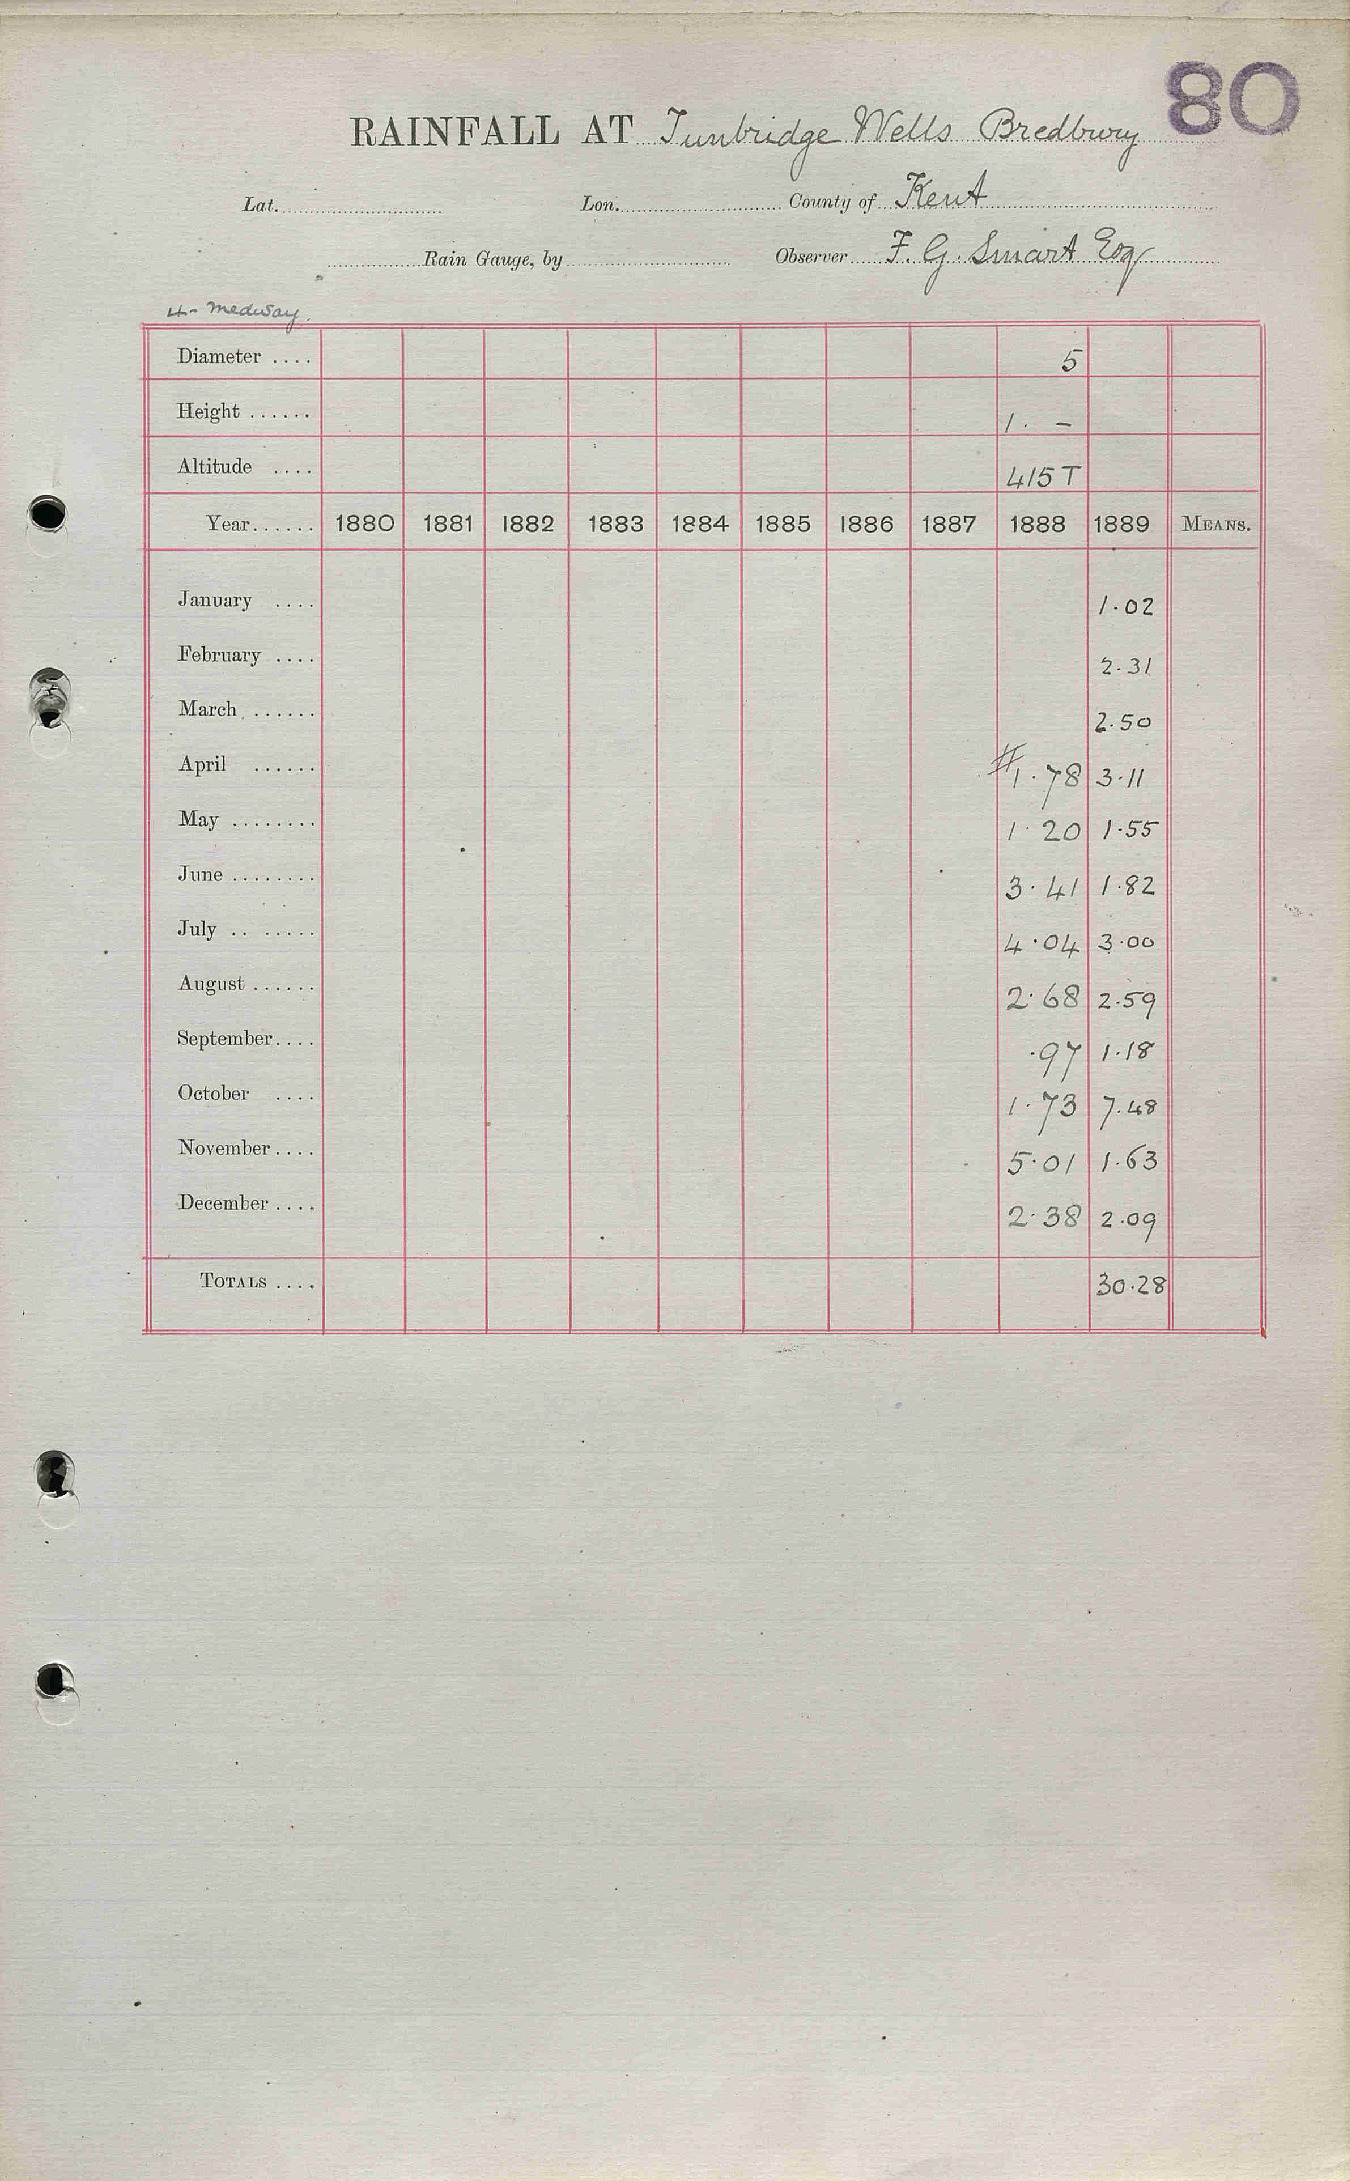 80
RAINFALL AT Tunbridge Wells Bredbury
Lat. Lon. County of Kent
Rain Gauge, by Observer F. G. Smart Esq
4 - Medway.
Diameter .... 5
Height ...... 1. -
Altitude .... 415 T
Year...... 1880 1881 1882 1883 1884 1885 1886 1887 1888 1889 MEANS.
January .... 1.02
February .... 2.31
March ...... 2.50
April ...... # 1.78 3.11
May ........ 1.20 1.55
June ........ 3.41 1.82
July .. ..... 4.04 3.00
August ...... 2.68 2.59
September.... .97 1.18
October .... 1.73 7.48
November .... 5.01 1.63
December .... 2.38 2.09
TOTALS .... 30.28